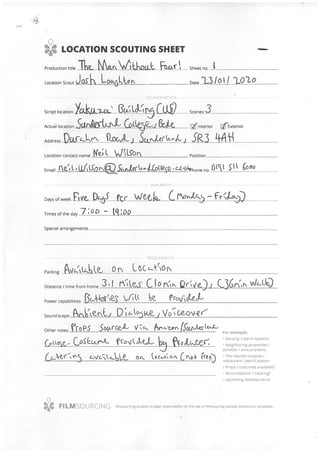 LOCATION SCOUTING SHEET
Production title The Man Without Fear! Sheet no. 1
Location Scout Josh Loughton Date 23/01/2020
Script location Yakuza' Building (US) Scenes 3
Actual location Sunderland College, Bede Interior Exterior
Address Durahm Road, Sunderland, SR3 4AH
Location contact name Neil Wilson Position
Email neil.wilson@SunderlandCollege.ac.uk Phone no. 0191 511 6000
Days of week Five Days Per Week (Monday-Friday)
Times of the day 7:00 - 19:00
Special arrangements
Parking Available on Location
Distance / time from home 3.1 Miles (10min Drive), (36min Walk)
Power capabilities Batteries Will be Provided
Soundscape Ambient, Dialogue, Voiceover
Other notes Props Sourced Via Amazon/Sunderland
College. Costume Provided by Producer.
Catering available on location (not free)
For example:
• Security / alarm systems
• Neighboring properties / activities / annual events
• The nearest hospital / restaurant / petrol station
• Props / costumes available?
• Accommodation / catering?
• Upcoming developments
FILMSOURCING Filmsourcing accepts no legal responsibility for the use of Filmsourcing sample contracts or templates.